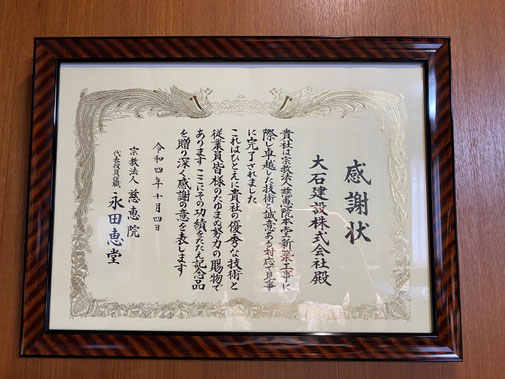 感謝状
大石建設株式会社殿
貴社は宗教法人慈恵院本堂新築工事に
際し卓越した技術と誠意ある対応で見事
に完了されました
これはひとえに貴社の優秀な技術と
従業員皆様のたゆまぬ努力の賜物で
あります ここにその功績をたたえ記念品
を贈り深く感謝の意を表します
令和四年十月四日
宗教法人 慈恵院
代表役員住職 永田恵堂